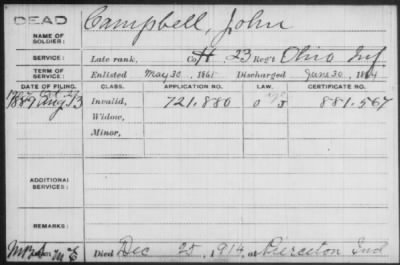 DEAD
NAME OF SOLDIER: Campbell, John
SERVICE: Late rank, Co. H, 23 Reg't Ohio Inf.
TERM OF SERVICE: Enlisted May 30, 1861 Discharged June 30, 1864
DATE OF FILING. CLASS. APPLICATION NO. LAW. CERTIFICATE NO.
1889 Aug 13 Invalid, 721.880 881.567
Widow,
Minor,
ADDITIONAL SERVICES:
REMARKS:
Died Dec 25, 1914, at Pierceton Ind